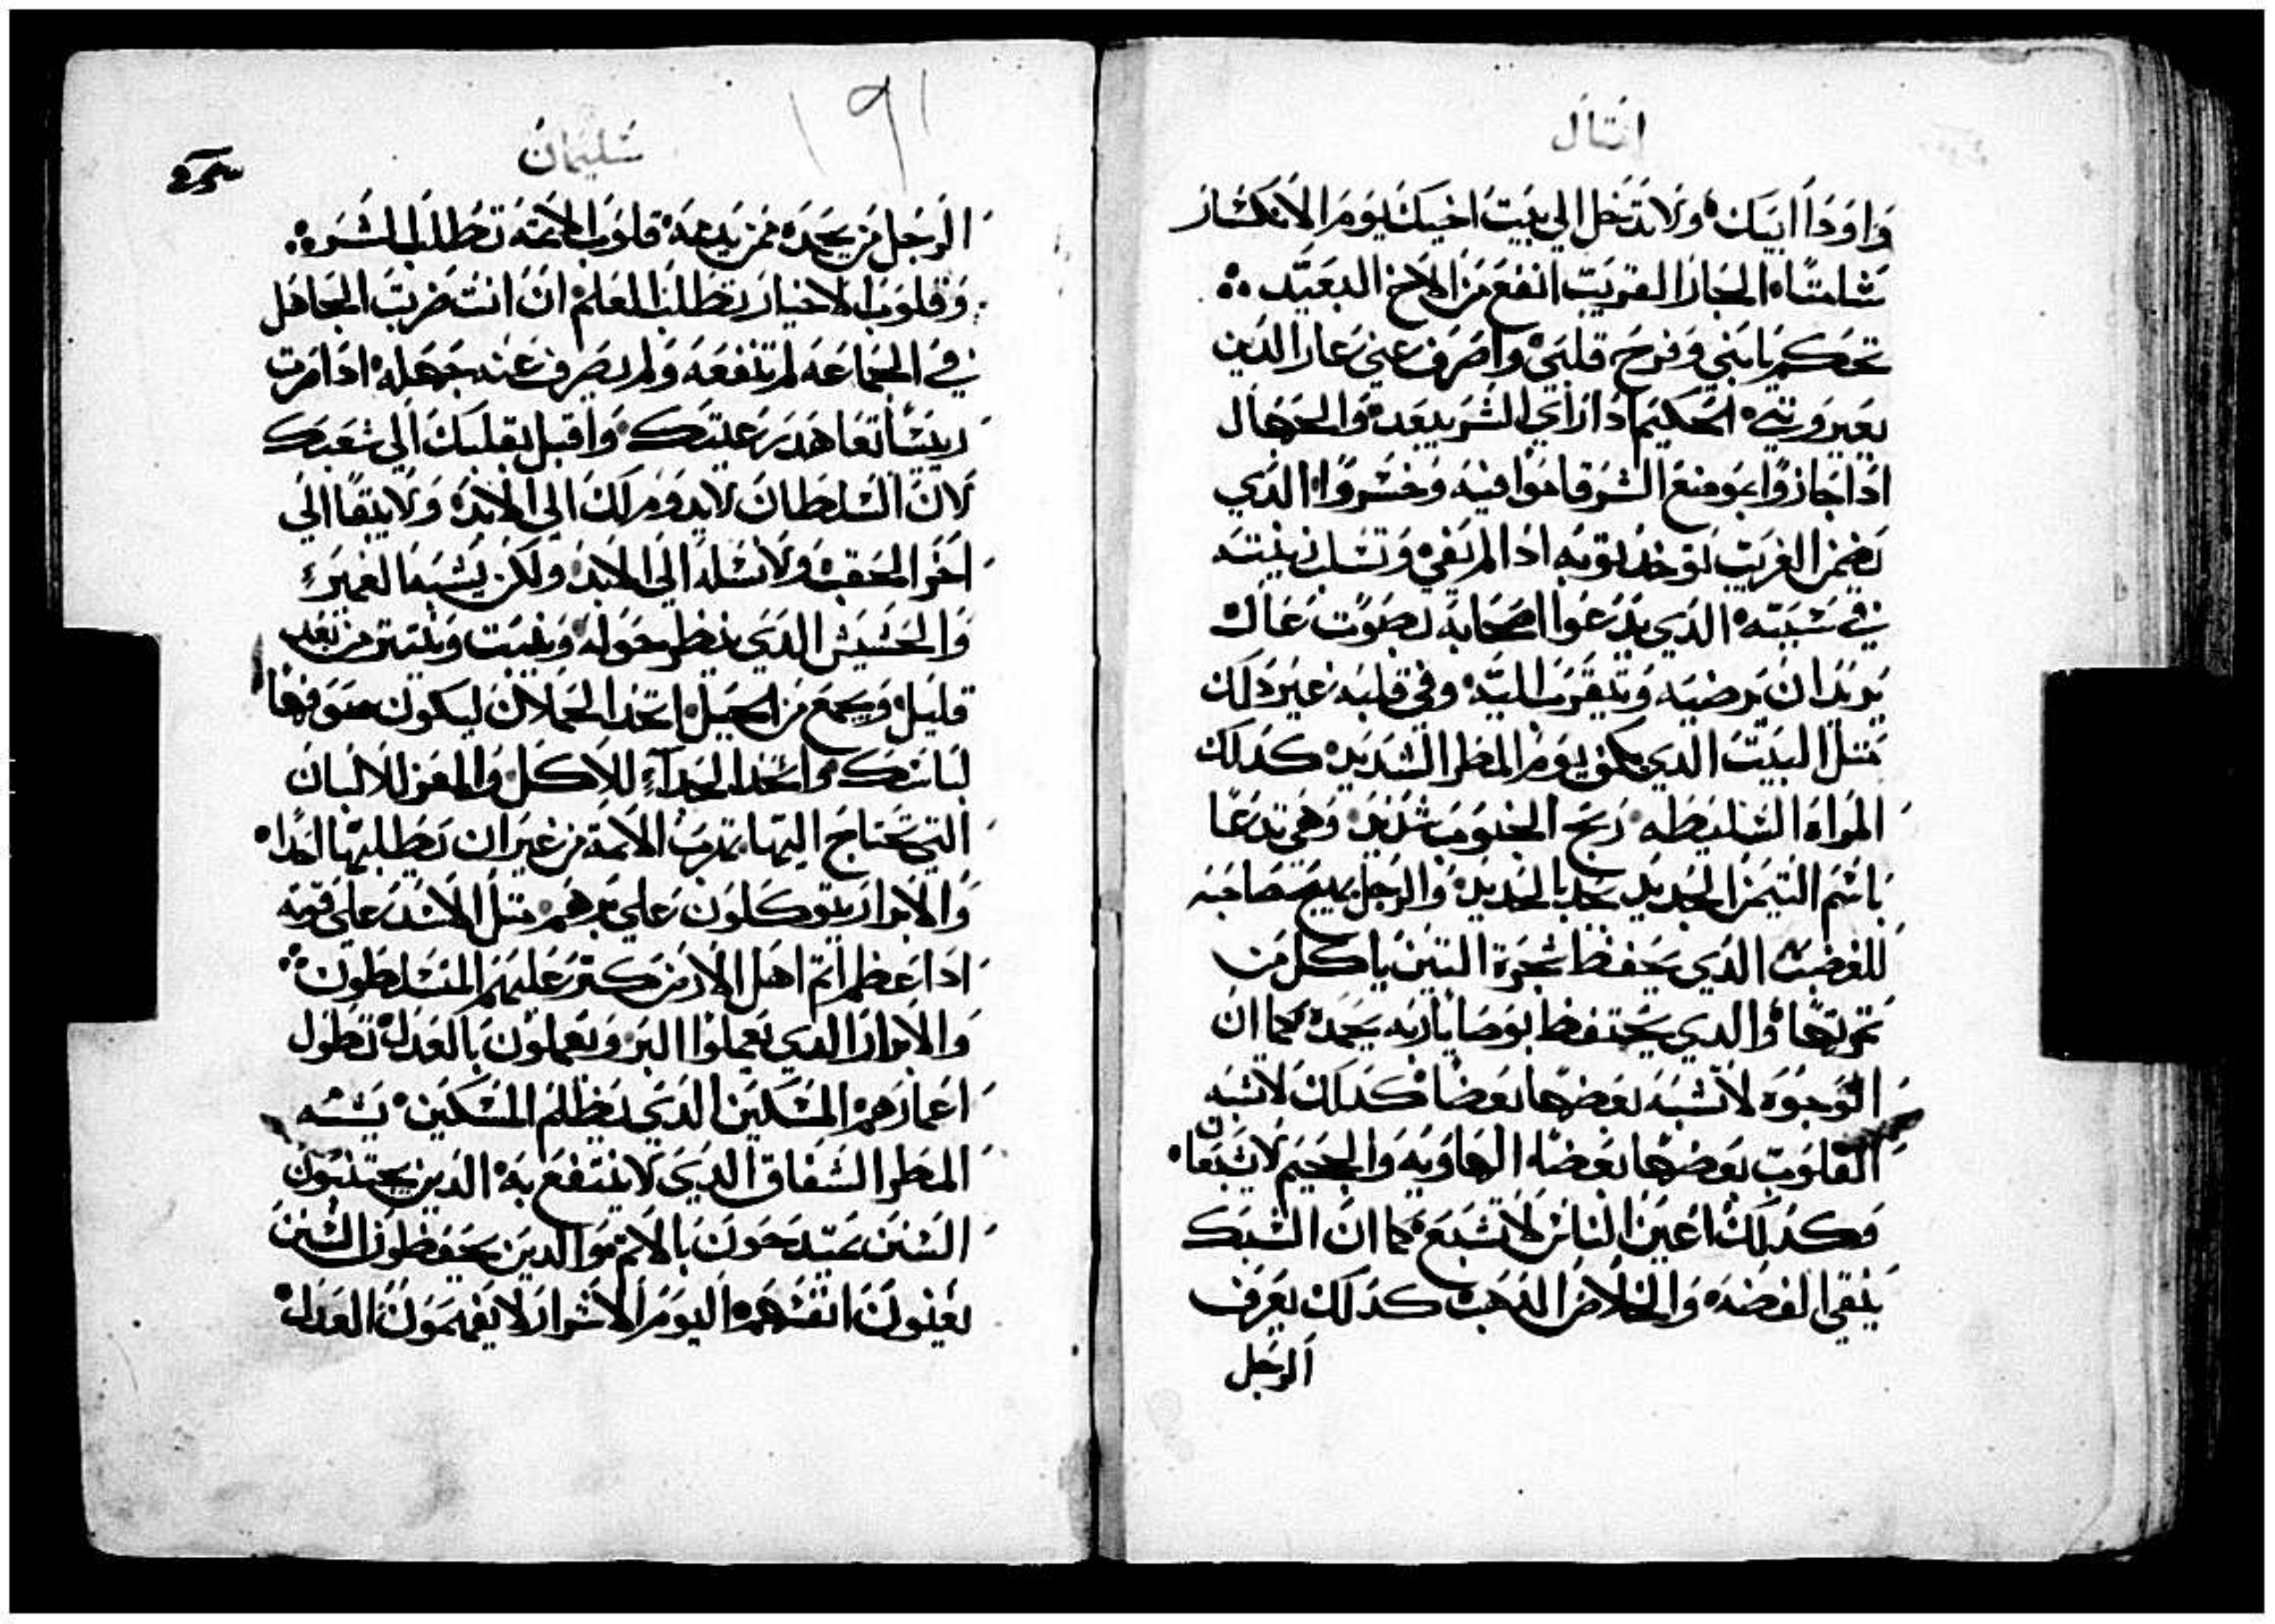 امتال
واودا ابيك ولا تدخل الي بيت اخيك يوم الانكسار
شامتا الجار القريب انفع من الاخ البعيد
تحكم يا بني وفرح قلبي واصرف عني عار الدين
يعيروني الحكيم ادا راي الشر يبعد والجهال
ادا جازوا بموضع الشر قاموا فيه وخسروا الدي
يضمن الغريب توخد توبه ادا لم يفي وتسلب زينته
في شبيته الدي يدعوا اصحابه بصوت عال
يريد ان يرضيه ويتقرب اليه وفي قلبه غير دلك
متل البيت الدي يكف يوم المطر الشديد كدلك
المراه السليطه ريح الجنوب شديد وهي تدعا
باسم التيمن الحديد يحد بالحديد والرجل يهيج صاحبه
للغضب الدي يحفظ شجرة التين ياكل من
تمرتها والدي يحتفظ بوصايا ربه يحمد كما ان
الوجوه لا تشبه بعضها بعضا كدلك لا تشبه
القلوب بعضها بعضا الهاويه والجحيم لا يشبعان
وكدلك اعين الناس لا تشبع كما ان السبك
ينقي الفضه والخلاص الدهب كدلك يعرف
الرجل
١٩١
سليمان
الرجل من يحمده ممن يدمه قلوب الاتمه تطلب الشر
وقلوب الاخيار تطلب العلم ان انت ضربت الجاهل
في الجماعه لم تنفعه ولم يصرف عنه جهله ادا مرت
ريسا تعاهد رعيتك واقبل بقلبك الي شعبك
لان السلطان لا يدوم لك الي الابد ولا يبقا الي
اخر الحقب ولا نسله الي الابد ولكن يشبه العمير
والحشيش الدي ينظر حوله وينبت وينتتر من بعد
قليل ويجمع من الجبل اتخد الحملان ليكون صوفها
لباسك واتخد الجداء للاكل والمعز للالبان
التي تحتاج اليها تهرب الاتمة من غير ان يطلبها احدا
والابرار يتوكلون علي برهم متل الاسد علي قوته
ادا عظم اتم اهل الارض كتر عليهم المتسلطون
والابرار الدي يعملوا البر ويعملون بالعدل تطول
اعمارهم المسكين الدي يظلم المسكين يشبه
المطر السفاق الدي لا ينتفع به الدين يجتنبون
السنن يمتدحون بالاتم والدين يحفظون السنن
يعينون انفسهم اليوم الاشرار لا يفهمون العدل